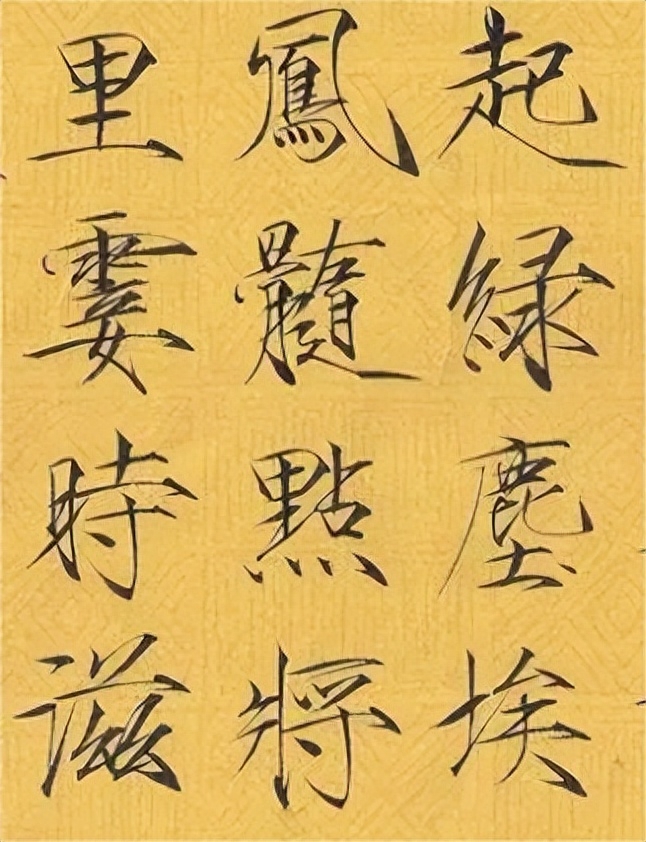 起緑塵埃
鳳髓點將
里霎時滋